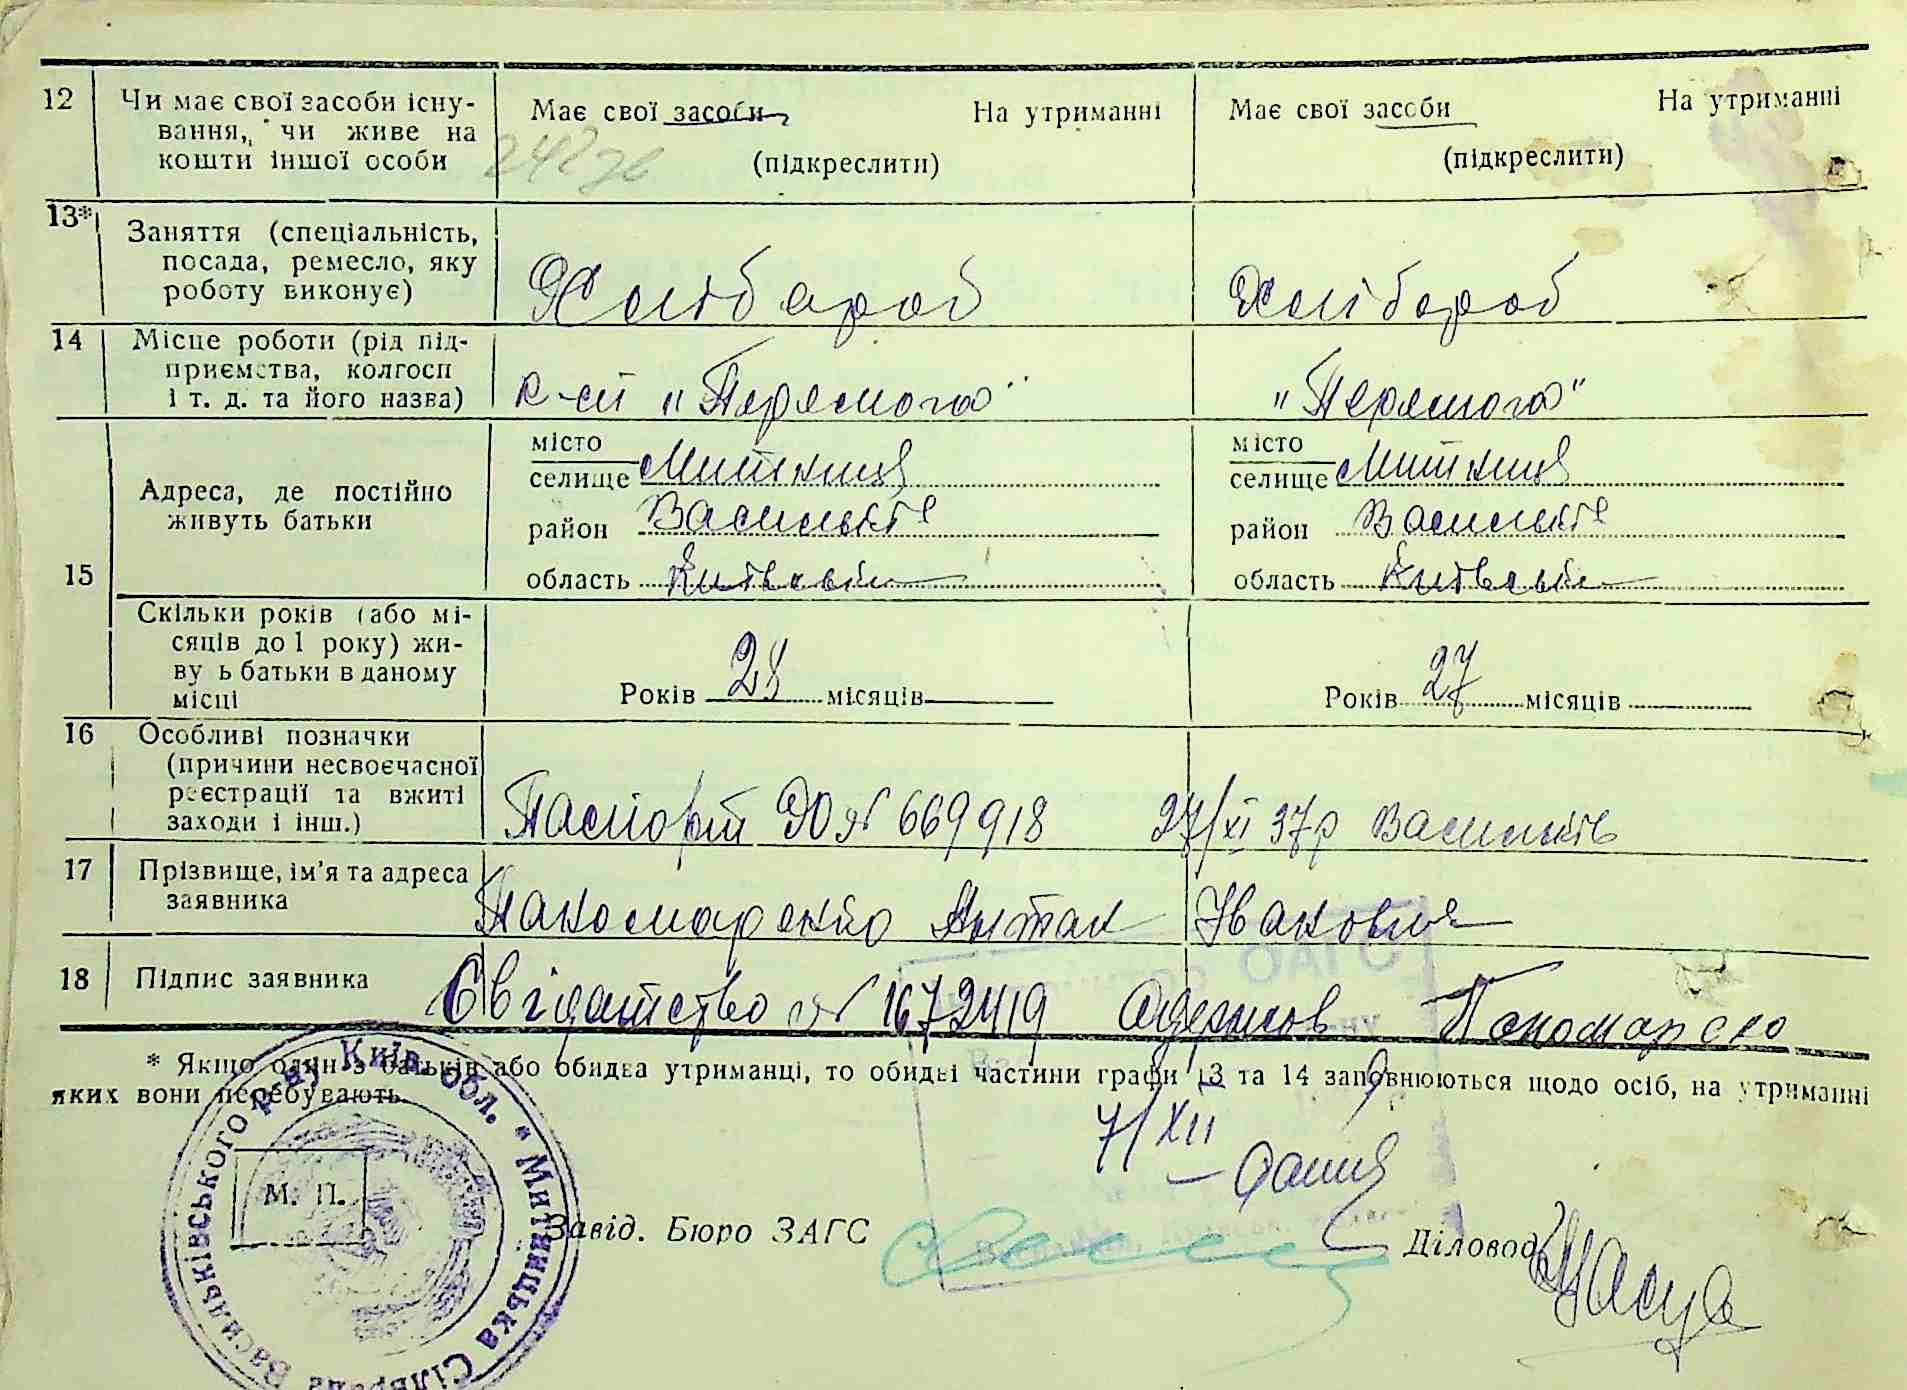 12 Чи має свої засоби існу-
вання, чи живе на
кошти іншої особи
Має свої засоби На утриманні
(підкреслити)
Має свої засоби На утриманні
(підкреслити)
13* Заняття (спеціальність,
посада, ремесло, яку
роботу виконує)
Хлібороб
Хлібороб
14 Місце роботи (рід під-
приємства, колгосп
і т. д. та його назва)
к-сп "Перемога"
"Перемога"
15 Адреса, де постійно
живуть батьки
місто
селище Митниця
район Васильків
область Київська
місто
селище Митниця
район Васильків
область Київська
Скільки років (або мі-
сяців до 1 року) жи-
ву ь батьки в даному
місці
Років 28 місяців
Років 27 місяців
16 Особливі позначки
(причини несвоєчасної
реєстрації та вжиті
заходи і інш.)
Паспорт № 669918 27/XI 37р Васильків
17 Прізвище, ім'я та адреса
заявника
Иванович
18 Підпис заявника
Свідатство № 1672419 одержов
* Якщо один з батьків або обидва утриманці, то обидві частини графи 13 та 14 заповнюються щодо осіб, на утриманні
яких вони перебувають.
7/XII
М. П.
Завід. Бюро ЗАГС
Діловод
ОАГС
Митницька Сільрада Васильківського р-ну Київ. обл.